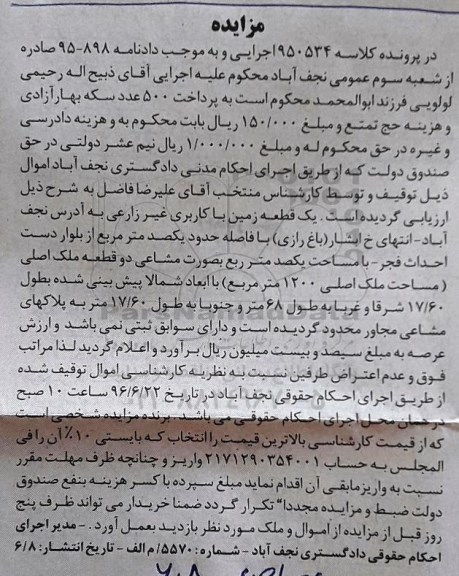 مزایده
در پرونده کلاسه ۹۵۰۵۳۴ اجرایی و به موجب دادنامه ۸۹۸-۹۵ صادره
از شعبه سوم عمومی نجف آباد محکوم علیه اجرایی آقای ذبیح اله رحیمی
لولویی فرزند ابوالمحمد محکوم است به پرداخت ۵۰۰ عدد سکه بهار آزادی
و هزینه حج تمتع و مبلغ ۱۵۰/۰۰۰ ریال بابت محکوم به و هزینه دادرسی
و غیره در حق محکوم له و مبلغ ۱/۰۰۰/۰۰۰ ریال نیم عشر دولتی در حق
صندوق دولت که از طریق اجرای احکام مدنی دادگستری نجف آباد اموال
ذیل توقیف و توسط کارشناس منتخب آقای علیرضا فاضل به شرح ذیل
ارزیابی گردیده است. یک قطعه زمین با کاربری غیر زارعی به آدرس نجف
آباد-انتهای خ ایثار (باغ رازی) با فاصله حدود یکصد متر مربع از بلوار دست
احداث فجر-با مساحت یکصد متر ربع بصورت مشاعی دو قطعه ملک اصلی
(مساحت ملک اصلی ۱۲۰۰ متر مربع) با ابعاد شمالا پیش بینی شده بطول
۱۷/۶۰ شرقا و غربا به طول ۶۸ متر و جنوبا به طول ۱۷/۶۰ متر به پلاکهای
مشاعی مجاور محدود گردیده است و دارای سوابق ثبتی نمی باشد و ارزش
عرصه به مبلغ سیصد و بیست میلیون ریال برآورد و اعلام گردید لذا مراتب
فوق و عدم اعتراض طرفین نسبت به نظریه کارشناسی اموال توقیف شده
از طریق اجرای احکام حقوقی نجف آباد در تاریخ ۹۶/۶/۲۲ ساعت ۱۰ صبح
در همان محل اجرای احکام حقوقی می باشد. برنده مزایده شخصی است
که از قیمت کارشناسی بالاترین قیمت را انتخاب که بایستی ۱۰٪ آن را فی
المجلس به حساب ۲۱۷۱۲۹۰۳۵۴۰۰۱ واریز و چنانچه ظرف مهلت مقرر
نسبت به واریز مابقی آن اقدام نماید مبلغ سپرده با کسر هزینه بنفع صندوق
دولت ضبط و مزایده مجددا" تکرار گردد ضمنا خریدار می تواند ظرف پنج
روز قبل از مزایده از اموال و ملک مورد نظر بازدید بعمل آورد. - مدیر اجرای
احکام حقوقی دادگستری نجف آباد - شماره: ۵۵۷۰/م الف - تاریخ انتشار: ۶/۸